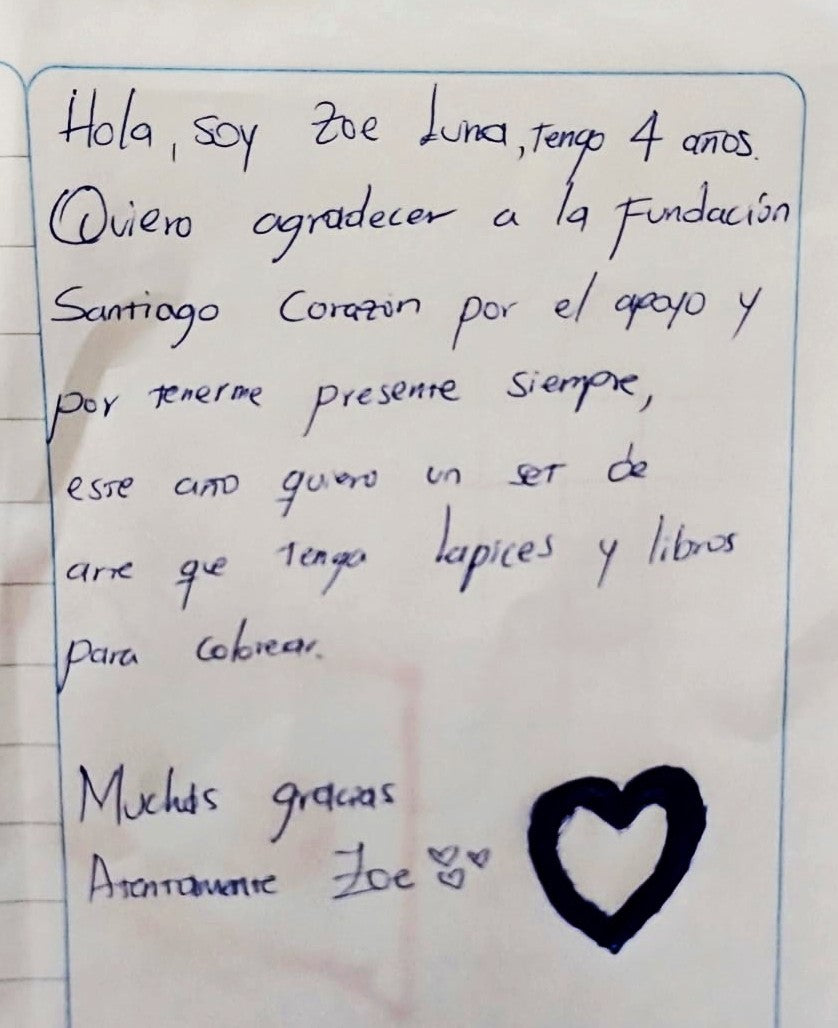 Hola, soy Zoe Luna, Tengo 4 años.
Quiero agradecer a la Fundación
Santiago Corazón por el apoyo y
por tenerme presente siempre,
este año quiero un set de
arte que Tenga lapices y libros
para colorear.
Muchas gracias
Atentamente Zoe